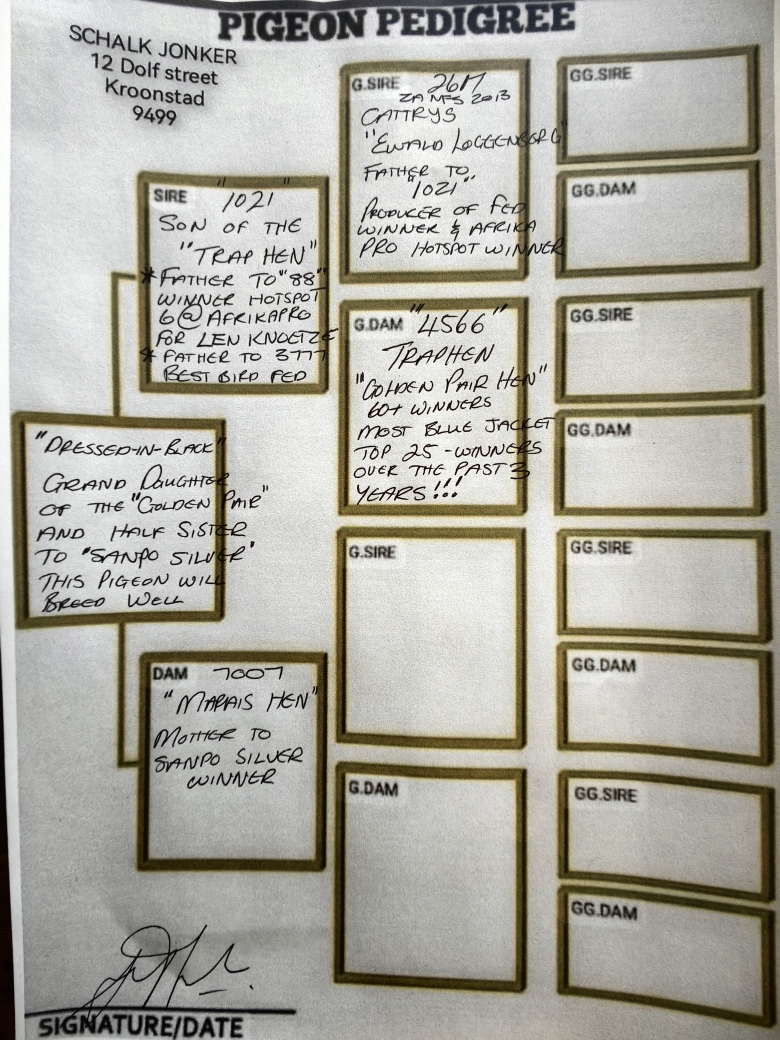 PIGEON PEDIGREE
SCHALK JONKER
12 Dolf street
Kroonstad
9499
"DRESSED-IN-BLACK"
GRAND DAUGHTER
OF THE "GOLDEN PAIR"
AND HALF SISTER
TO "SANPO SILVER"
THIS PIGEON WILL
BREED WELL
SIRE "1021"
SON OF THE
"TRAP HEN"
* FATHER TO "88"
WINNER HOTSPOT
6 @ AFRIKAPRO
FOR LEN KNOETZE
* FATHER TO 3777
BEST BIRD FED
DAM 7007
"MARAIS HEN"
MOTHER TO
SANPO SILVER
WINNER
G.SIRE 2617
ZA MFS 2013
CATTRYS
"EWALD LOGGENBERG"
FATHER TO
"1021"
PRODUCER OF FED
WINNER & AFRIKA
PRO HOTSPOT WINNER
G.DAM "4566"
TRAPHEN
"GOLDEN PAIR HEN"
60+ WINNERS
MOST BLUE JACKET
TOP 25 -WINNERS
OVER THE PAST 3
YEARS!!!
G.SIRE
G.DAM
GG.SIRE
GG.DAM
GG.SIRE
GG.DAM
GG.SIRE
GG.DAM
GG.SIRE
GG.DAM
SIGNATURE/DATE